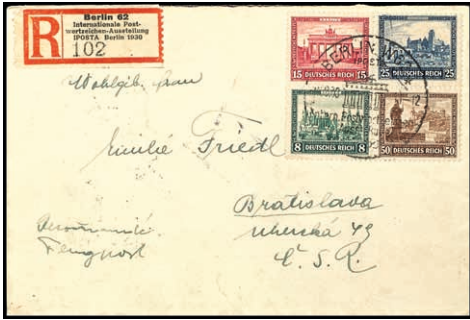 R
Berlin 62
Internationale Post-
wertzeichen-Ausstellung
IPOSTA Berlin 1930
102
15 DEUTSCHES REICH 15
25 DEUTSCHES REICH 25
8 DEUTSCHES REICH 8
50 DEUTSCHES REICH 50
BERLIN
IPOSTA
Wohlgeb. Frau
Emilie Friedl
Bratislava
Uherská 49
Č. S. R.
Flugpost